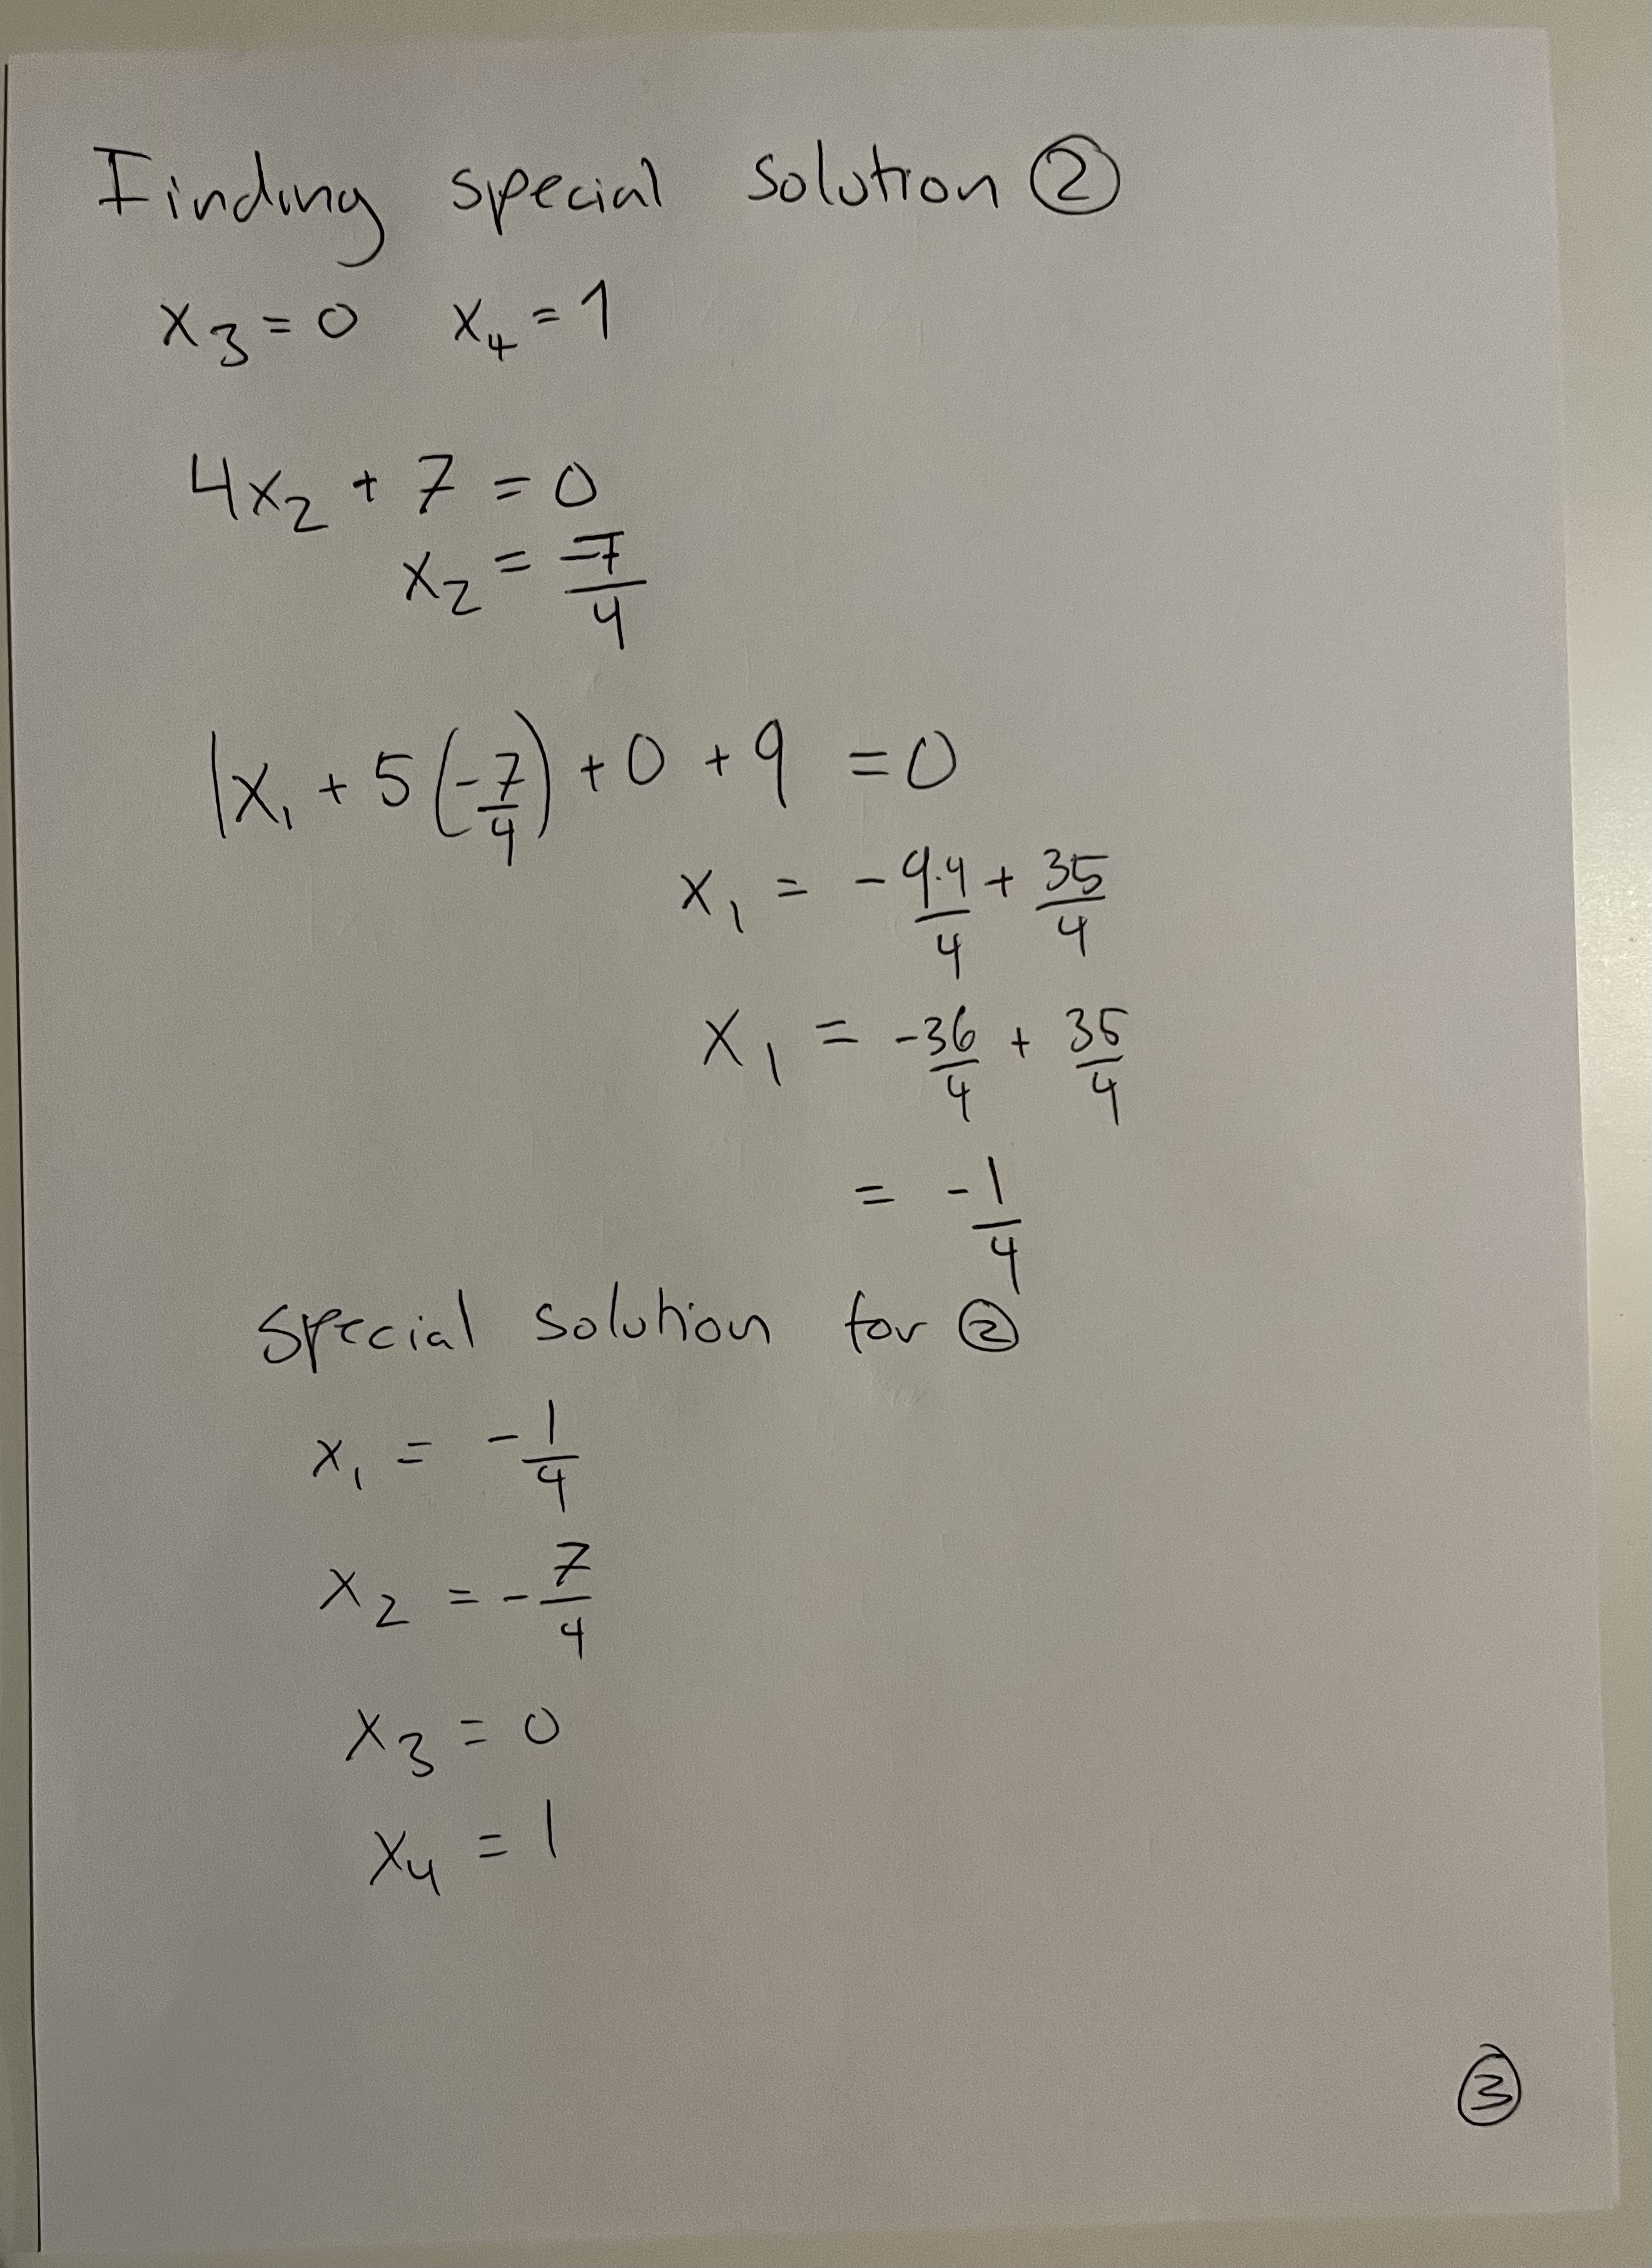 Finding special solution ②
x₃ = 0 x₄ = 1
4x₂ + 7 = 0
x₂ = -7/4
1x₁ + 5(-7/4) + 0 + 9 = 0
x₁ = -9·4/4 + 35/4
x₁ = -36/4 + 35/4
= -1/4
special solution for ②
x₁ = -1/4
x₂ = -7/4
x₃ = 0
x₄ = 1
③